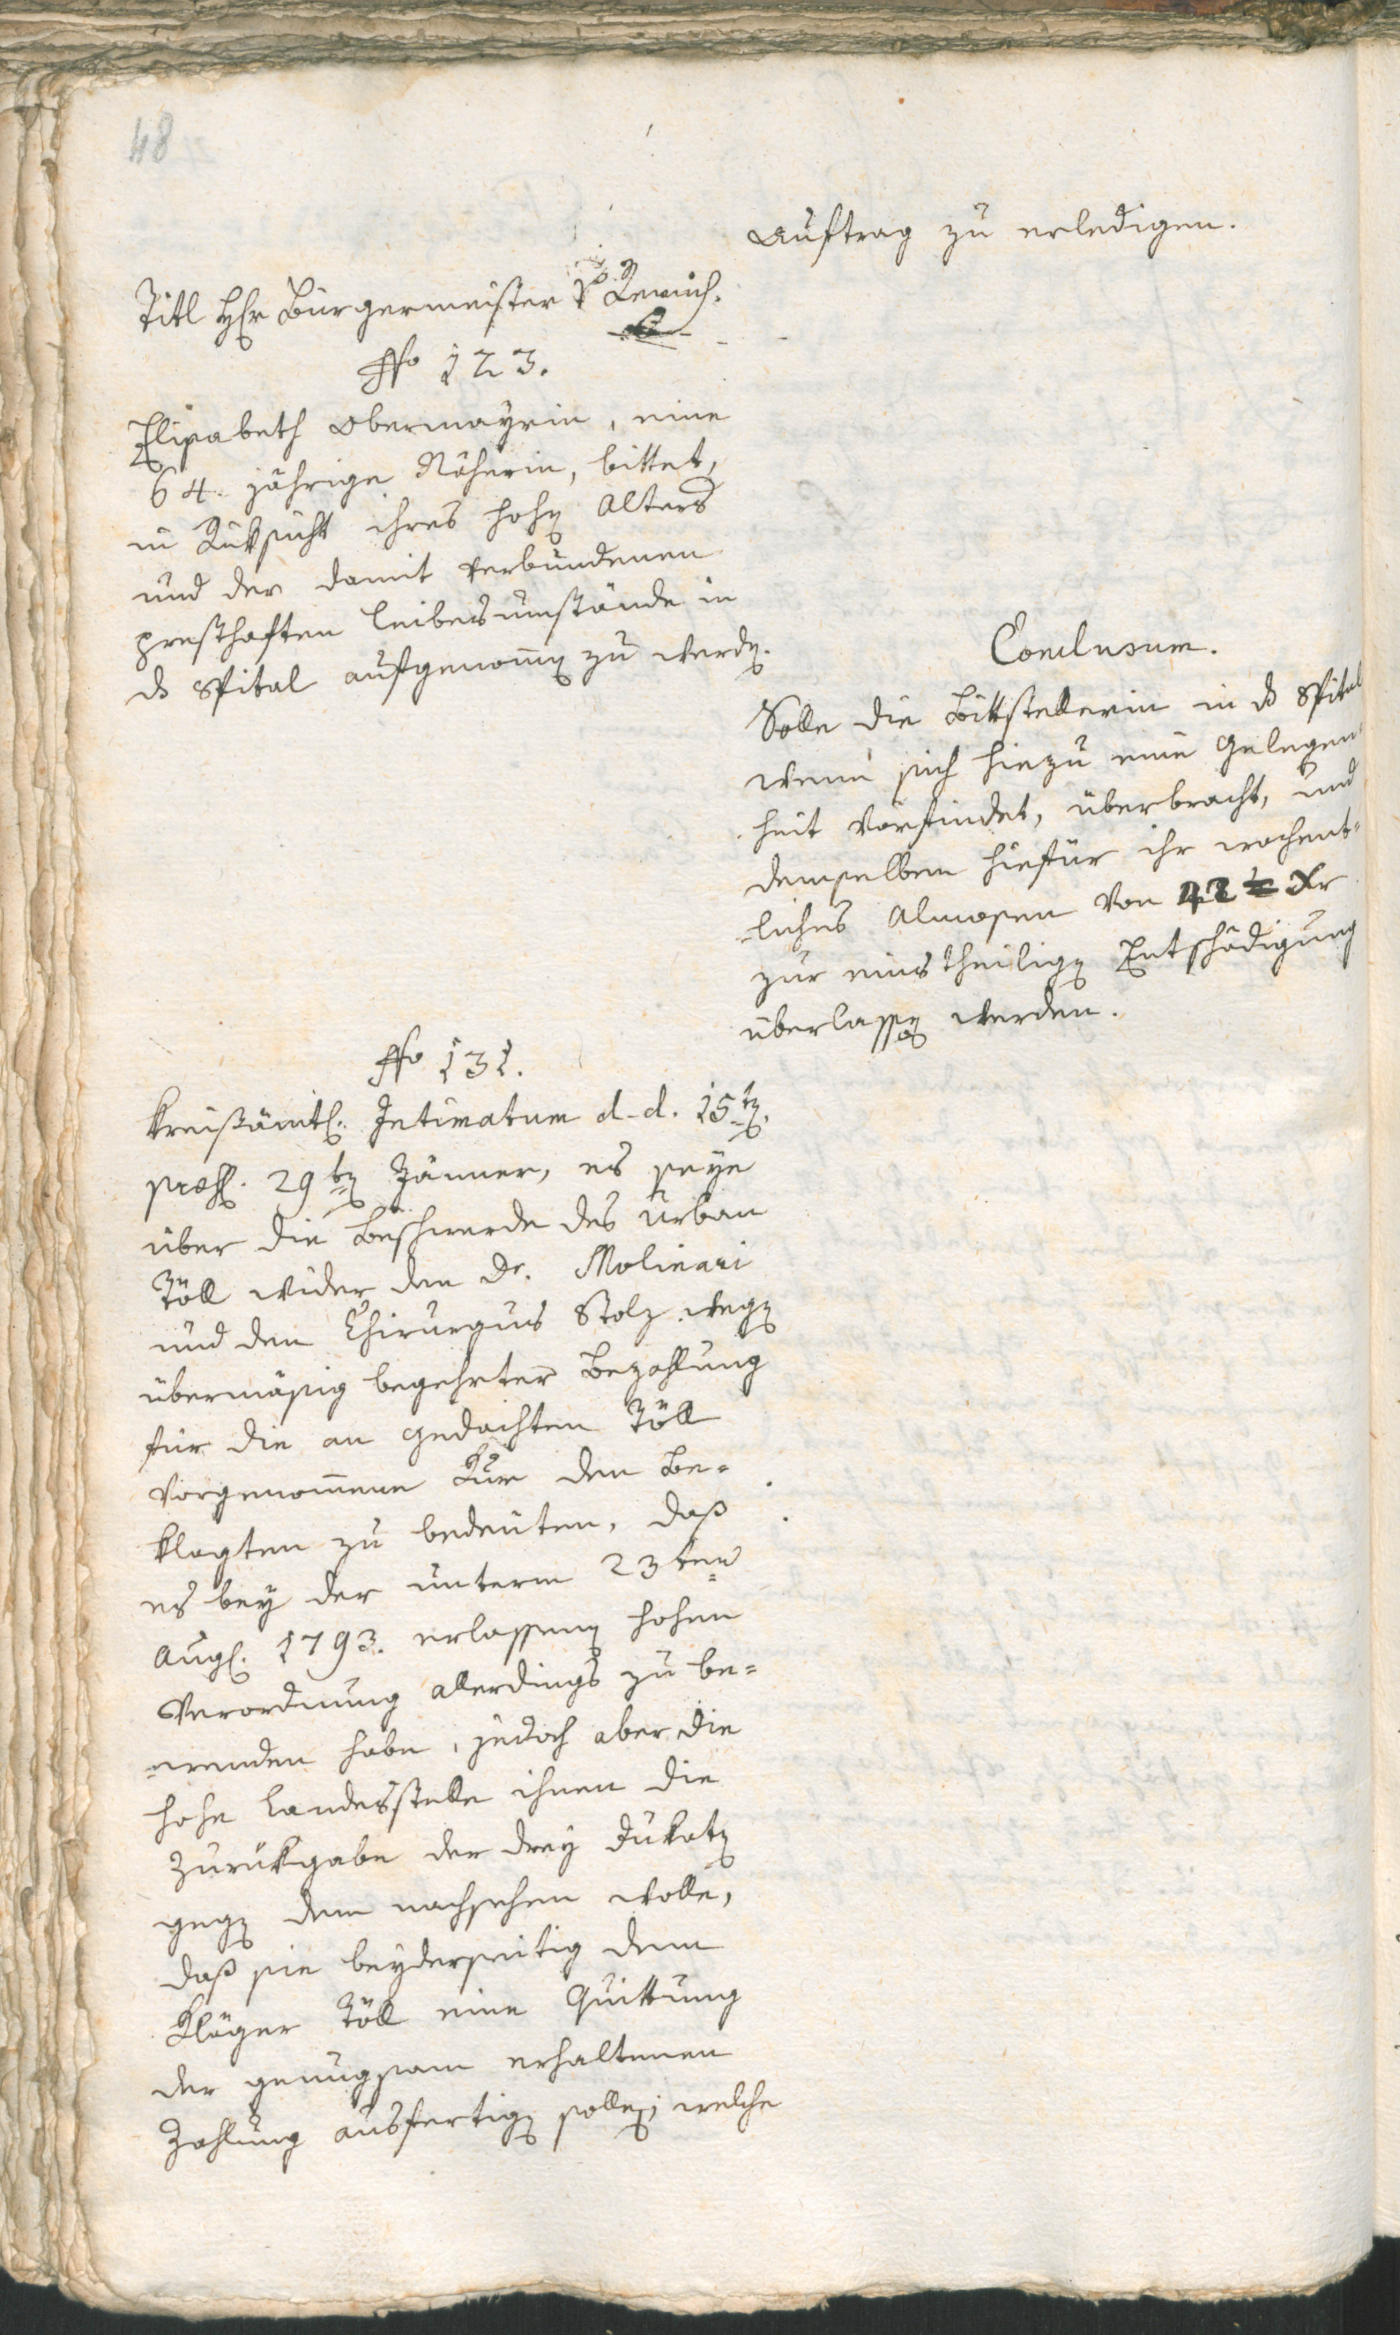 48
Auftrag zu erledigen.
Titl Hr Bürgermeister v
No 123.
Elisabeth Obermayrin, eine
64. jährige Näherin, bittet,
in Rüksicht ihres hohen Alters
und der damit verbundenen
presthaften Leibesumstände in
das Spital aufgenommen zu werden.
Conclusum.
Solle die Bittstellerin in das Spital
wenn sich hiezu eine Gelegen
heit vorfindet, überbracht, und
demselben hiefür ihr wochent-
liches Almosen von 42 Xr
zur einstheiligen Entschädigung
überlassen werden.
No 131.
Kreisämtl. Intimatum d. d. 15ten.
præs. 29ten Jänner, es seye
über die Beschwerde des Urban
Töll wider den Dr. Molinari
und den Chirurgus Stolz wegen
übermäsig begehrter Bezahlung
für die an gedachten Töll
vorgenommene Kur den Be-
klagten zu bedeuten, daß
es bey der unterm 23ten
Aug. 1793. erlassenen hohen
Verordnung allerdings zu be-
wenden habe, jedoch aber die
hohe Landesstelle ihnen die
Zurükgabe der drey Dukaten
gegen dem nachsehen wolle,
daß sie beyderseitig dem
Kläger Töll eine Quittung
der genugsam erhaltenen
Zahlung ausfertigen sollen, welche